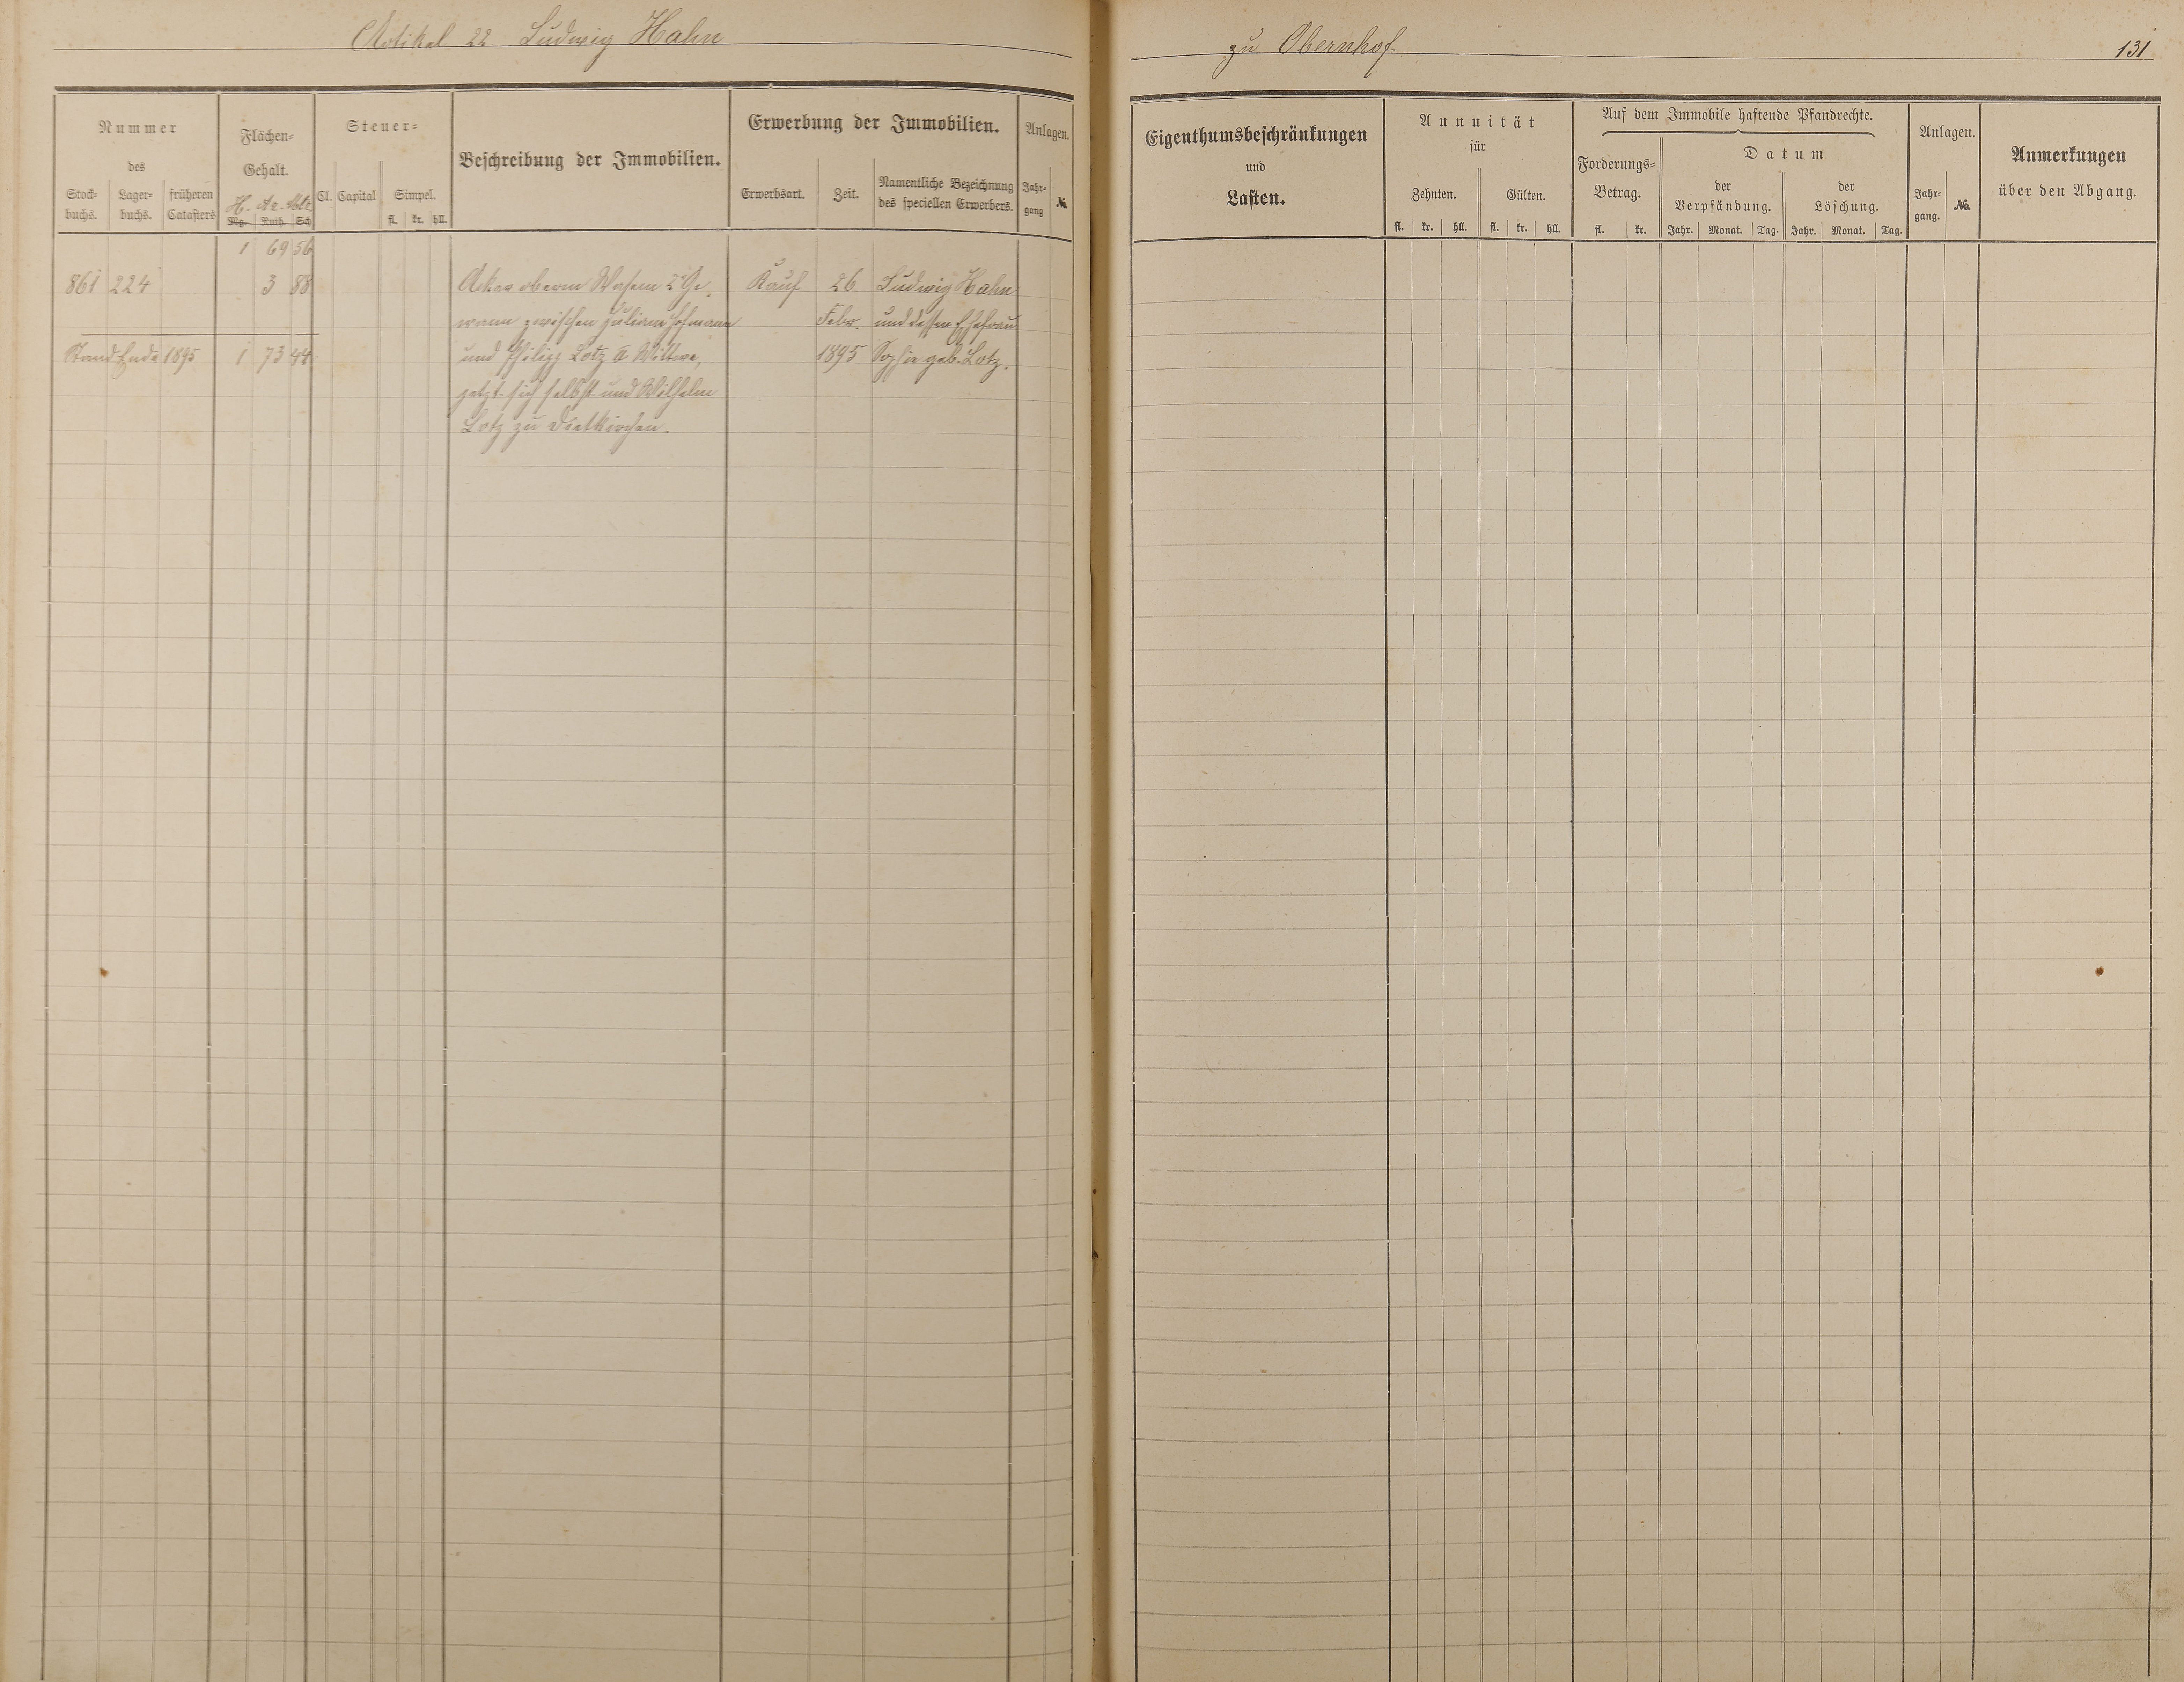 Artikel 22 Ludwig Hahn
Nummer
des
Stock-buchs. Lager-buchs. früheren Catasters
Flächen-Gehalt.
H. Ar. Mtr.
Mg. Ruth. Sch.
Steuer-
Cl. Capital Simpel.
fl. kr. hll.
Beschreibung der Immobilien.
Erwerbung der Immobilien.
Erwerbsart. Zeit. Namentliche Bezeichnung des speciellen Erwerbers.
Anlagen.
Jahr-gang №
1 69 56
861 224 3 88 Acker oberm Wasem 2r Ge- Kauf 26 Ludwig Hahn
wann zwischen Juliane Hofmann Febr. und dessen Ehefrau
Stand Ende 1895 1 73 44 und Philipp Lotz II Wittwe, 1895 Sophie geb. Lotz.
jetzt sich selbst und Wilhelm
Lotz zu Dietkirchen.
zu Obernhof
131
Eigenthumsbeschränkungen
und
Lasten.
Annuität
für
Zehnten. Gülten.
fl. kr. hll. fl. kr. hll.
Auf dem Immobile haftende Pfandrechte.
Forderungs-Betrag.
fl. kr.
Datum
der Verpfändung. der Löschung.
Jahr. Monat. Tag. Jahr. Monat. Tag.
Anlagen.
Jahr-gang. No.
Anmerkungen
über den Abgang.